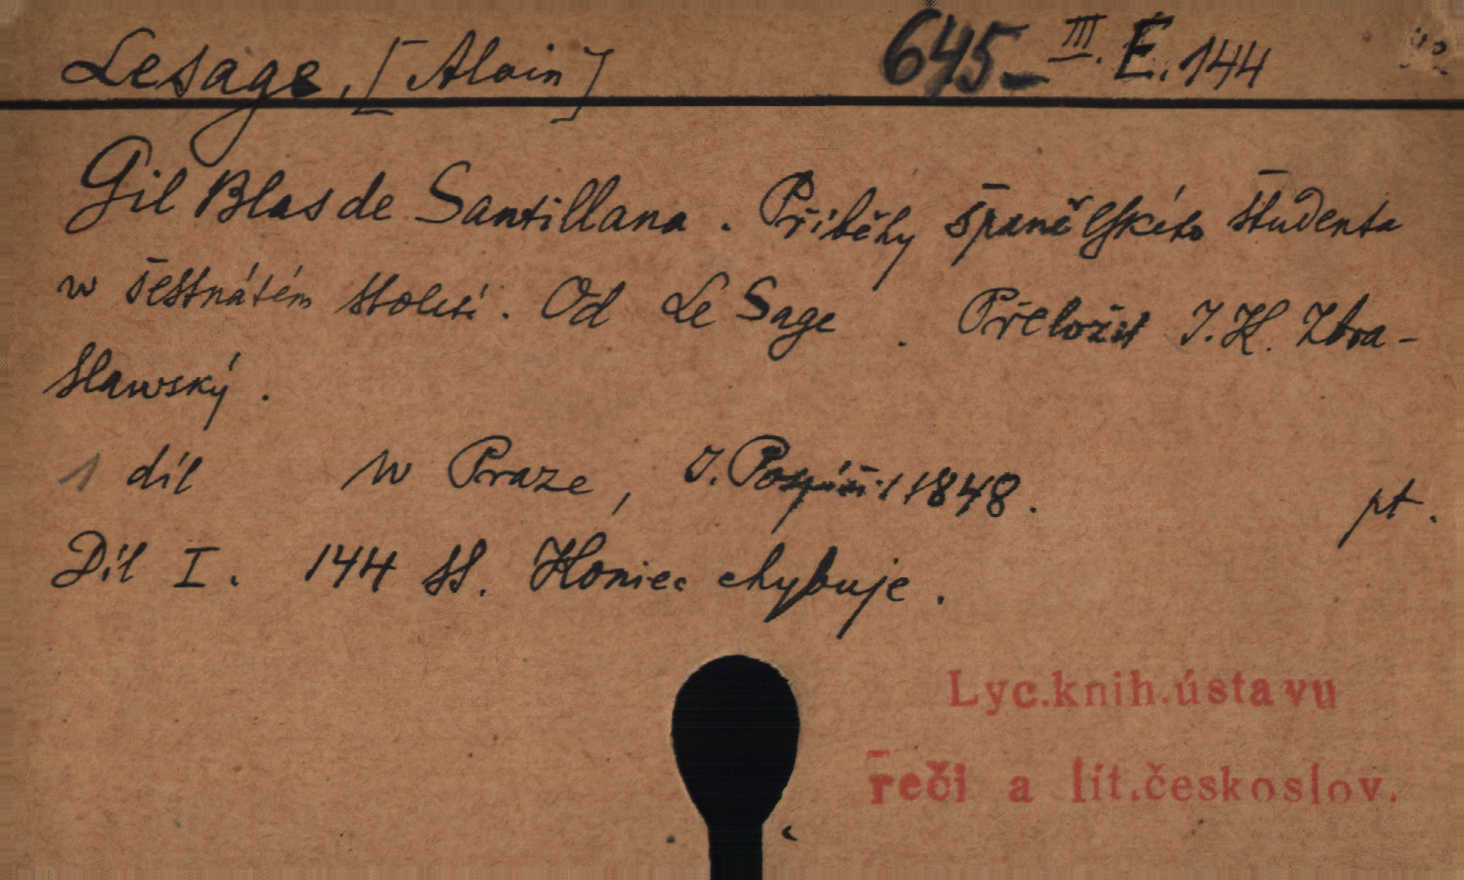 Lesage, [Alain] 645-III. E. 144
Gil Blas de Santillana. Příběhy španělského študenta
w šestnátém století. Od Le Sage. Přeložil J. K. Zbra-
slawský.
1 díl W Praze, J. Pospíšil 1848. pt.
Díl I. 144 ss. Koniec chybuje.
Lyc.knih.ústavu
řeči a lit.českoslov.